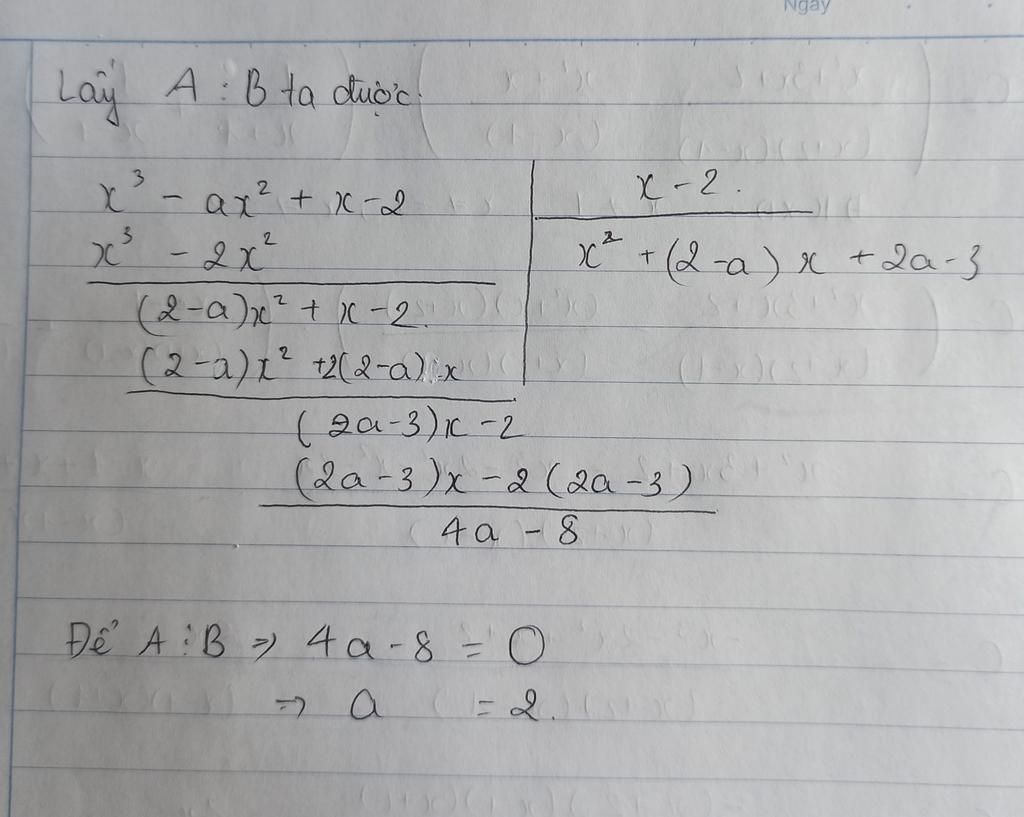 Ngày
Lấy A : B ta được
x³ - ax² + x - 2 | x - 2.
x³ - 2x² | x² + (2-a) x + 2a - 3
(2-a)x² + x - 2.
(2-a)x² +2(2-a) x
(2a-3)x - 2
(2a-3)x - 2(2a-3)
4a - 8
Để A ⋮ B => 4a - 8 = 0
=> a = 2.